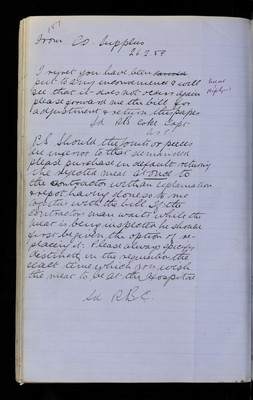 187
From CO. Supplies
26.2.58
I regret you have been
put to any inconvenience & will
see that it does not occur again
please forward me the bill for
adjustment & return the papers
Sd RB Coke Capt
P.S. Should the joints or pieces
be inferior to that demanded
please purchase in default returning
the rejected meat at once to
the contractor with an explanation
& report having done so to me
together with the bill. If the
contractors man waits while the
meat is being inspected he should
first be given the option of re-
placing it. Please always specify
distinctly in the requisition the
exact time which you wish
the meat to be at the Hospital
Sd R.B.C.